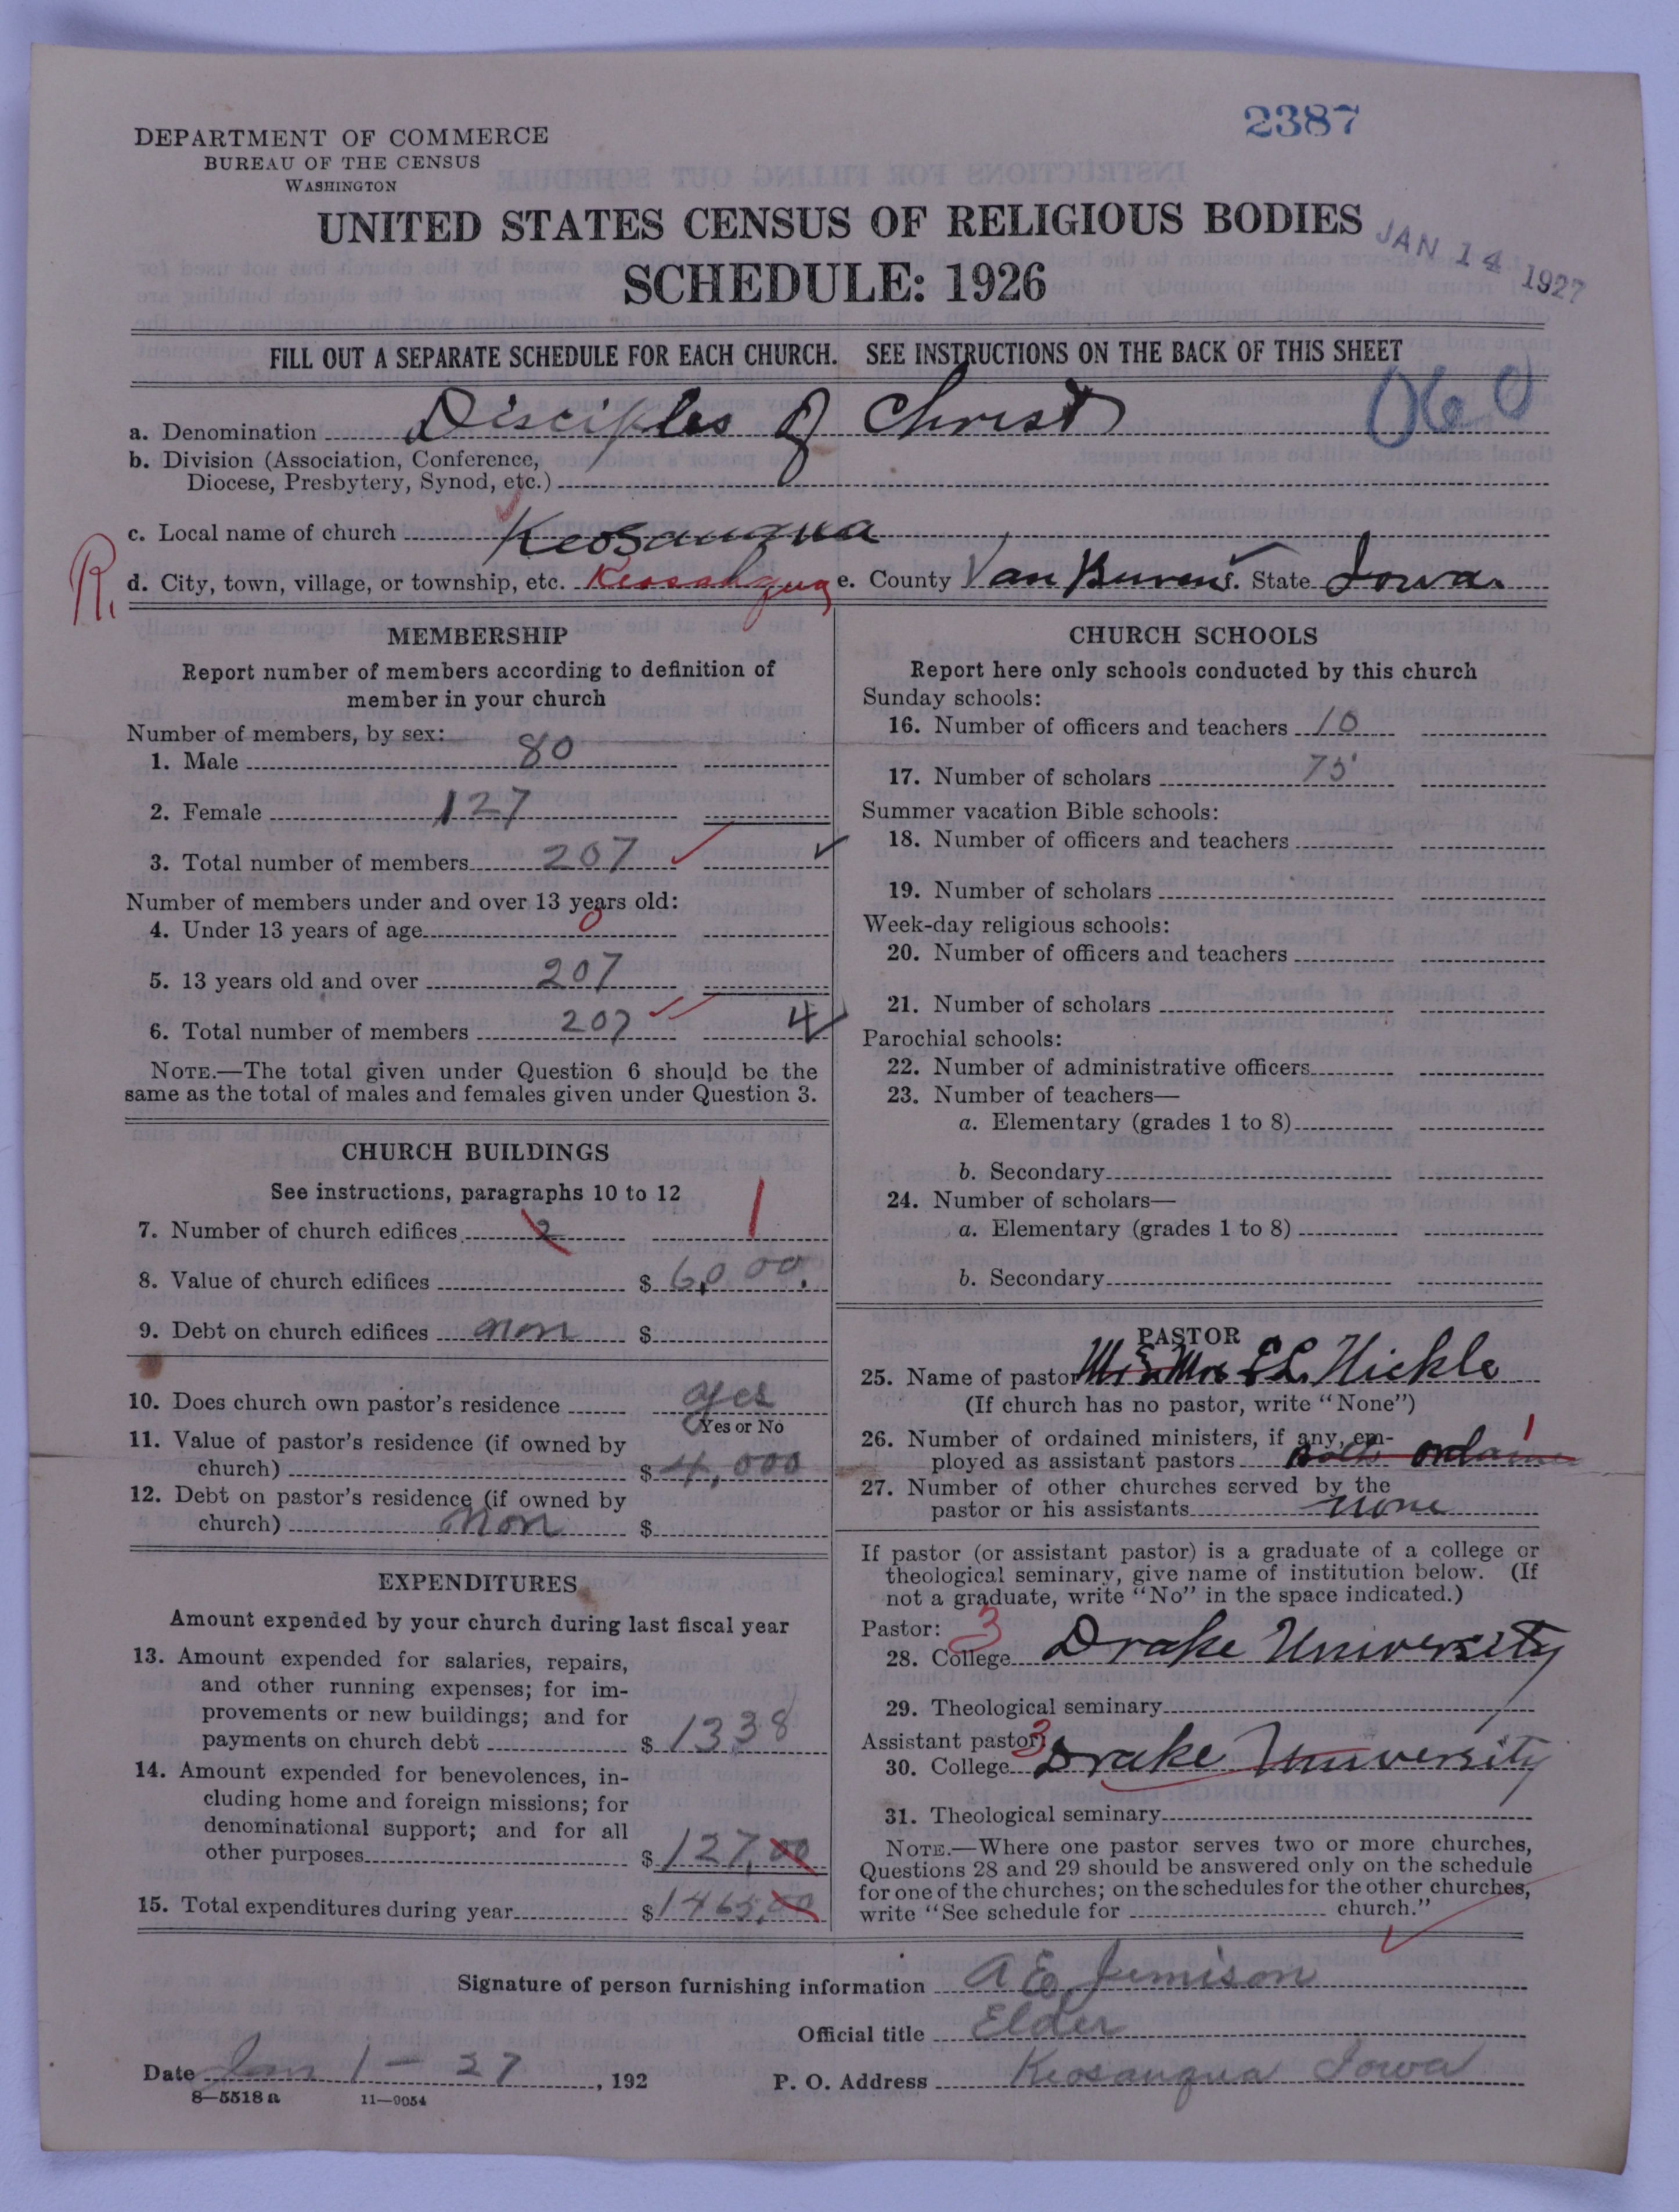 2387
DEPARTMENT OF COMMERCE
BUREAU OF THE CENSUS
WASHINGTON
UNITED STATES CENSUS OF RELIGIOUS BODIES
JAN 14 1927
SCHEDULE: 1926
FILL OUT A SEPARATE SCHEDULE FOR EACH CHURCH. SEE INSTRUCTIONS ON THE BACK OF THIS SHEET
060
a. Denomination Disciples of Christ
b. Division (Association, Conference,
Diocese, Presbytery, Synod, etc.)
c. Local name of church Keosauqua
R.
d. City, town, village, or township, etc. e. County Van Buren f. State Iowa.
MEMBERSHIP
Report number of members according to definition of
member in your church
Number of members, by sex:
1. Male 80
2. Female 127
3. Total number of members 207
Number of members under and over 13 years old:
4. Under 13 years of age 0
5. 13 years old and over 207
6. Total number of members 207 4
NOTE.—The total given under Question 6 should be the
same as the total of males and females given under Question 3.
CHURCH BUILDINGS
See instructions, paragraphs 10 to 12
7. Number of church edifices 2 1
8. Value of church edifices $ 6,000.
9. Debt on church edifices non $
10. Does church own pastor's residence yes
Yes or No
11. Value of pastor's residence (if owned by
church) $ 4,000
12. Debt on pastor's residence (if owned by
church) non $
EXPENDITURES
Amount expended by your church during last fiscal year
13. Amount expended for salaries, repairs,
and other running expenses; for im-
provements or new buildings; and for
payments on church debt $ 1338
14. Amount expended for benevolences, in-
cluding home and foreign missions; for
denominational support; and for all
other purposes $ 127,00
15. Total expenditures during year $ 1465,00
CHURCH SCHOOLS
Report here only schools conducted by this church
Sunday schools:
16. Number of officers and teachers 10
17. Number of scholars 75
Summer vacation Bible schools:
18. Number of officers and teachers
19. Number of scholars
Week-day religious schools:
20. Number of officers and teachers
21. Number of scholars
Parochial schools:
22. Number of administrative officers
23. Number of teachers—
a. Elementary (grades 1 to 8)
b. Secondary
24. Number of scholars—
a. Elementary (grades 1 to 8)
b. Secondary
PASTOR
25. Name of pastor Mr & Mrs E L. Nickle
(If church has no pastor, write "None")
26. Number of ordained ministers, if any, em- 1
ployed as assistant pastors both ordain
27. Number of other churches served by the
pastor or his assistants none
If pastor (or assistant pastor) is a graduate of a college or
theological seminary, give name of institution below. (If
not a graduate, write "No" in the space indicated.)
Pastor: 3
28. College Drake University
29. Theological seminary
Assistant pastor: 3
30. College Drake University
31. Theological seminary
NOTE.—Where one pastor serves two or more churches,
Questions 28 and 29 should be answered only on the schedule
for one of the churches; on the schedules for the other churches,
write "See schedule for church."
Signature of person furnishing information A E Jimison
Official title Elder
Date Jan 1 - 27, 192 P. O. Address Keosauqua Iowa
8—5518 a 11—9054